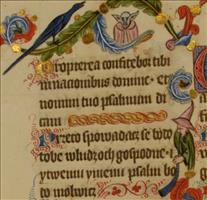 Propterea confitebor tibi
innacionibus domine · et
nomini tuo psalmum di
cam
Przeto spowadacz se bødø
tobe wludzoch gospodne · y
twemu ymenu psalm bø
dø molwicz